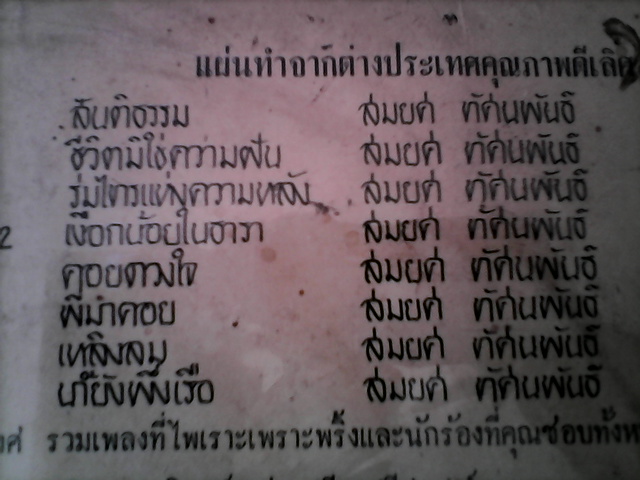 แผ่นทำจากต่างประเทศคุณภาพดีเลิศ
สันติธรรม สมยศ ทัศนพันธ์
ชีวิตมิใช่ความฝัน สมยศ ทัศนพันธ์
ร่มไทรแห่งความหลัง สมยศ ทัศนพันธ์
2 เงือกน้อยในธารา สมยศ ทัศนพันธ์
คอยดวงใจ สมยศ ทัศนพันธ์
พี่มาคอย สมยศ ทัศนพันธ์
เหลิงลม สมยศ ทัศนพันธ์
น้ำยังพึ่งเรือ สมยศ ทัศนพันธ์
รวมเพลงที่ไพเราะเพราะพริ้งและนักร้องที่คุณชอบทั้งห